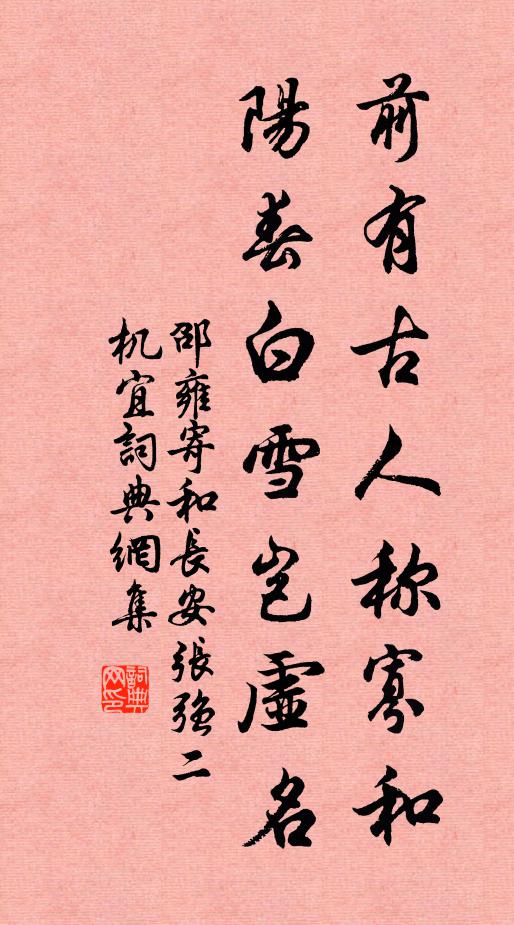 前有古人称寡和
陽春白雪岂虚名
邵雍寄和長安張强二
机宜詞典網集
詞典网印